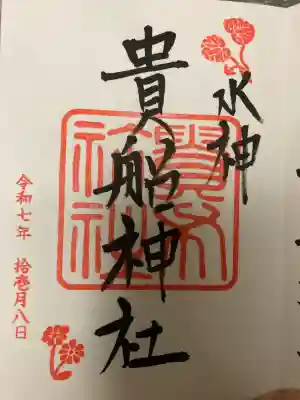 水神
貴船神社
令和七年 拾壱月八日